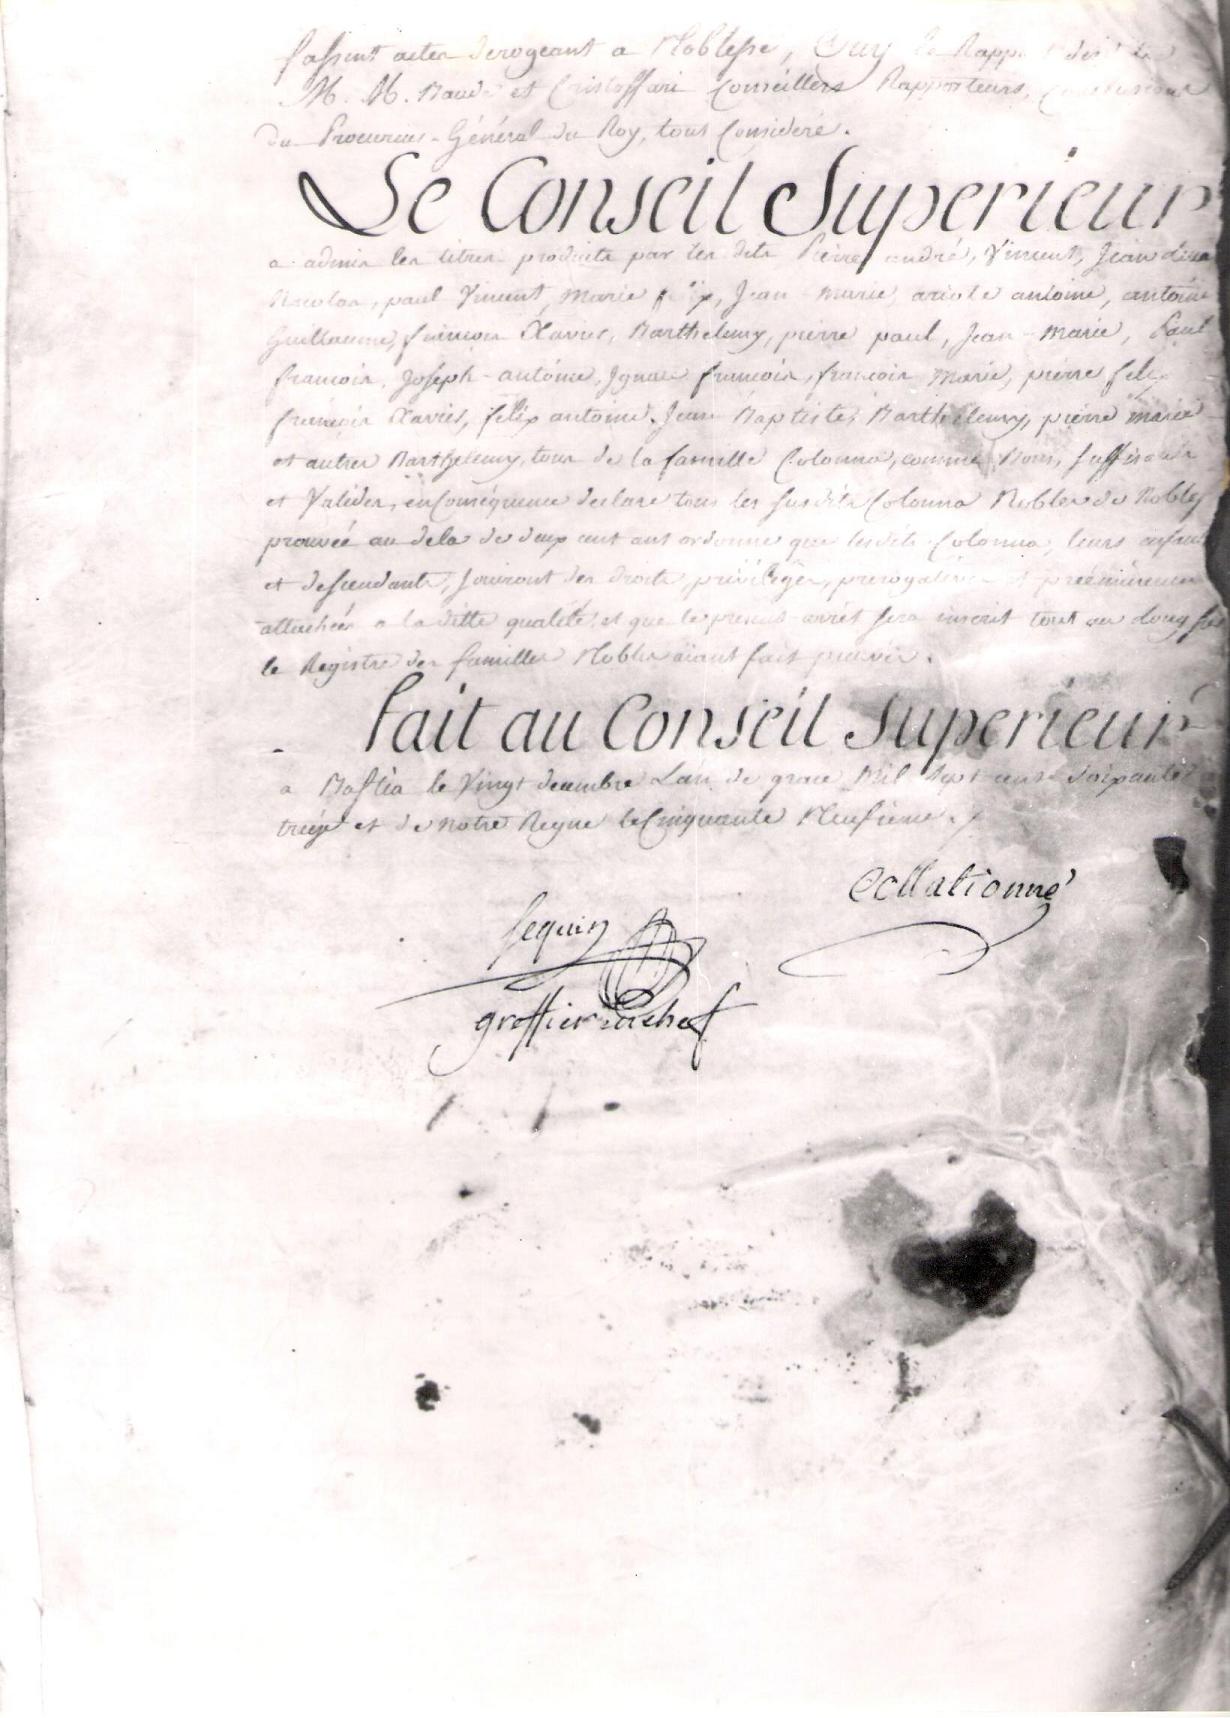 fassent actes derogeant a Noblesse, Ouy le Rapp des
M. M. Baude et Cristoffari Conseillers Rapporteurs, Conclusions
du Procureur-Général du Roy, tout Consideré.
Le Conseil Superieur
a admis les titres produits par les dits Pierre andré, Vincent, Jean
Nicolas, paul Vincent, Marie Jean-Marie, antoine, antoine
Guillaume, françois Xavier, Barthelemy, pierre paul, Jean-Marie, Paul
francois, Joseph-antoine, Ignace françois, francois Marie, pierre felix
françois Xavier, felix antoine, Jean Baptiste, Barthelemy, pierre marie
et autres Barthelemy, tous de la famille Colonna, comme Bons, suffisants
et Valides, en Conséquence declare tous les susdits Colonna Nobles de Nobless
prouvée au dela de deux cent ans ordonne que lesdits Colonna, leurs enfants
et descendants, Jouiront des droits, priviléges, prerogatives et prééminences
attachées a la ditte qualité, et que le present arrêt sera inscrit tout au long sur
le Registre des familles Nobles aïant fait preuve.
Fait au Conseil Superieur
a Bastia le Vingt decembre Lan de grace Mil Sept cent Soixante
treize et de notre Regne le Cinquante Neufieme.
Collationné
Sequin
greffier en chef